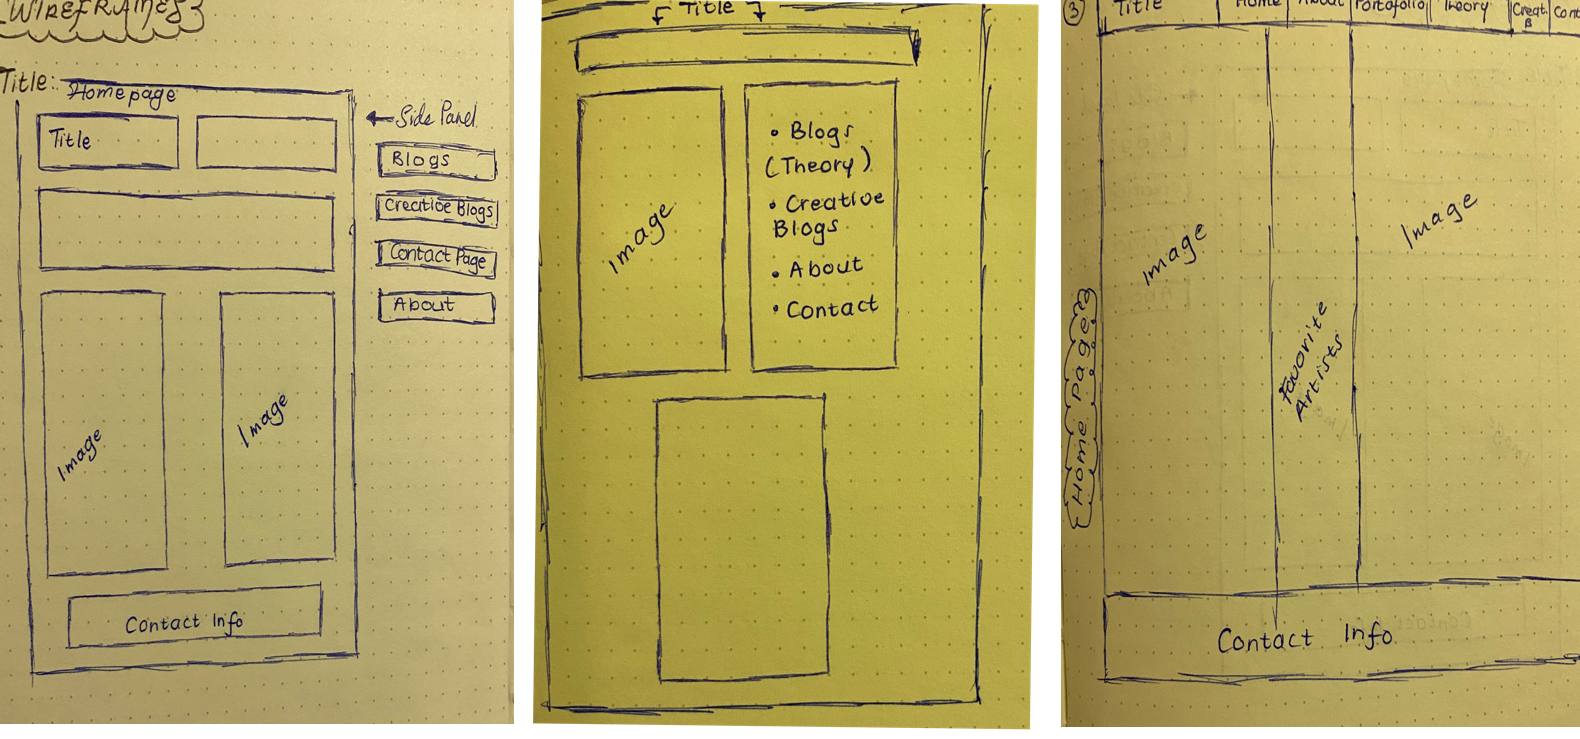 {WIREFRAMES}
Title:
Homepage
Title
Side Panel
Blogs
Creative Blogs
Contact Page
About
Image
Image
Contact Info
Title
Image
• Blogs
(Theory)
• Creative
Blogs
• About
• Contact
3
Title
Home
About
Portofolio
Theory
Creat.
B
Cont
{Home Page}
Image
Favorite
Artists
Image
Contact Info